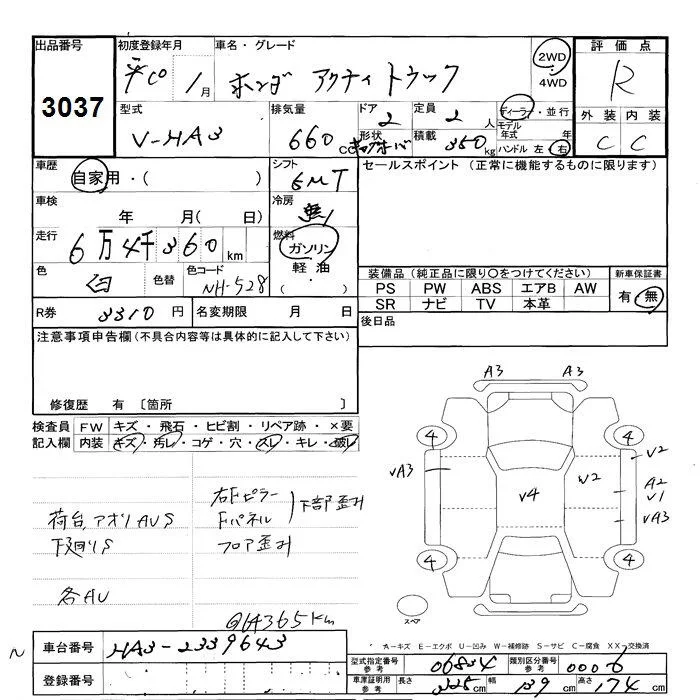 出品番号
3037
初度登録年月
平10年 1月
車名・グレード
ホンダ アクティ トラック
2WD
4WD
評価点
R
型式
V-HA3
排気量
660 cc
ドア
2
形状
定員
2 人
積載
350 kg
ディーラー・並行
モデル年式 年
ハンドル 左 右
外装
C
内装
C
車歴
自家用・( )
シフト
5MT
セールスポイント(正常に機能するものに限ります)
車検
年 月( 日)
冷房
無
走行
6万4千360km
燃料
ガソリン
軽油
( )
色
白
色替
色コード
NH-528
装備品(純正品に限り○をつけてください)
PS PW ABS エアB AW
SR ナビ TV 本革
新車保証書
有・無
R券
3310 円
名変期限 月 日
後日品
注意事項申告欄(不具合内容等は具体的に記入して下さい)
修復歴 有 〔箇所 〕
検査員記入欄
FW キズ・飛石・ヒビ割・リペア跡・×要
内装 キズ・汚レ・コゲ・穴・スレ・キレ・破レ
荷台、アオリAUS
下廻りS
各AU
右Fピラー
Fパネル
下部歪み
フロア歪み
@64365km
A3 A3
4 4
VA3
V4
W2
V2
A2
V1
VA3
4 4
スペア
A-キズ E-エクボ U-凹み W-補修跡 S-サビ C-腐食 XX-交換済
車台番号
HA3-2339643
登録番号
型式指定番号
参考
06834
類別区分番号
参考
0006
車庫証明用
参考
長さ
325cm
幅
139cm
高さ
174cm